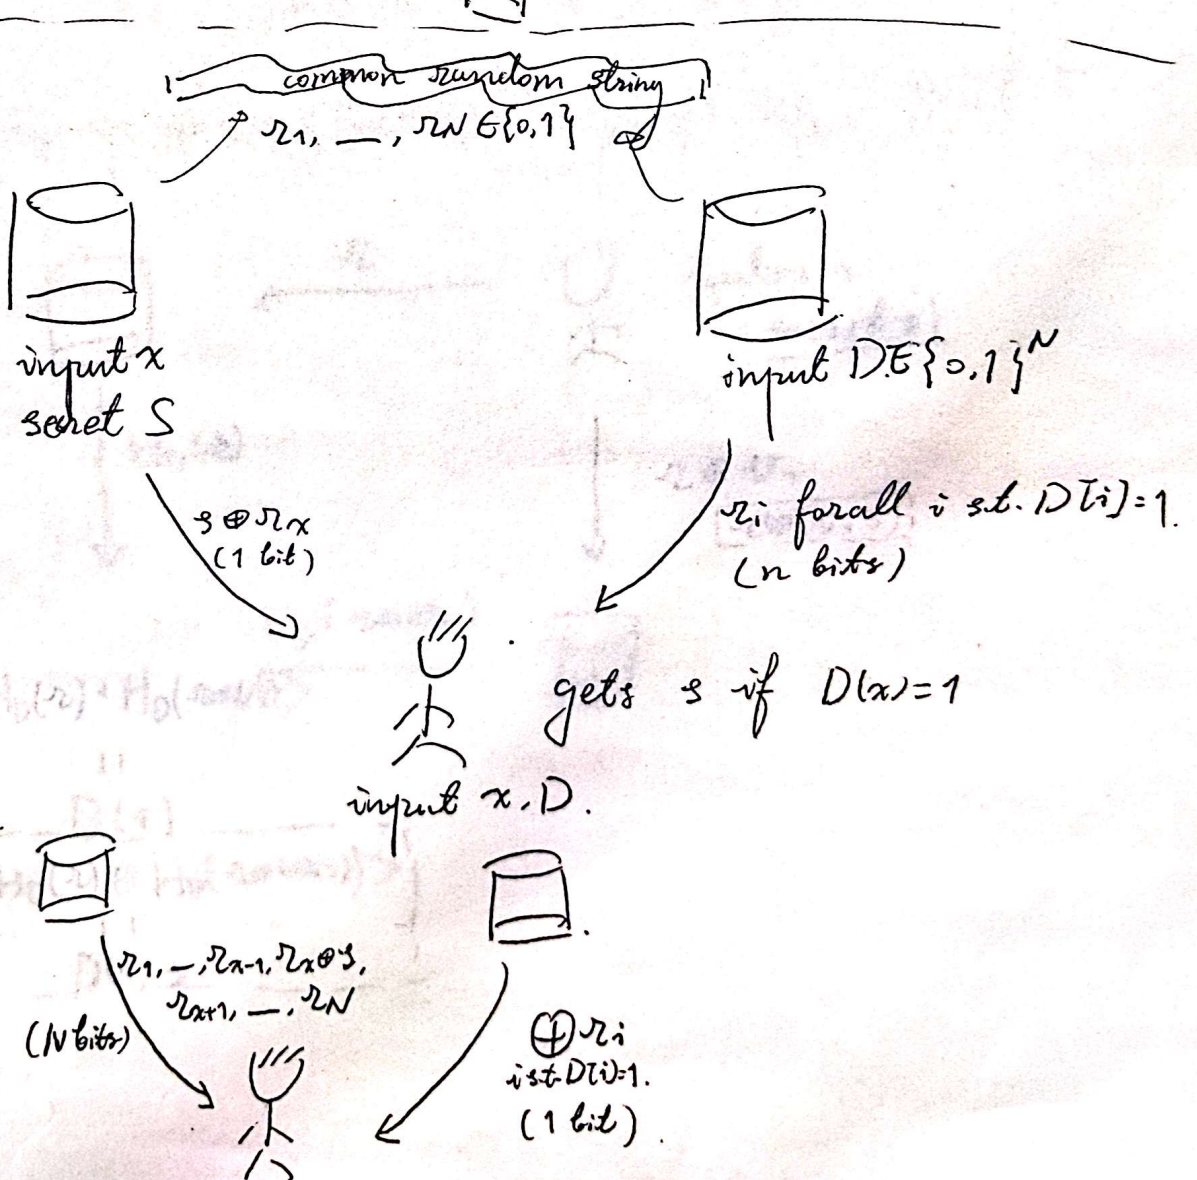 common random string
r1, —, rN ∈ {0,1}
input x
secret S
input D ∈ {0,1}^N
s ⊕ rx
(1 bit)
ri forall i s.t. D[i]=1.
(n bits)
gets s if D(x)=1
input x, D.
r1, —, rx-1, rx⊕s,
rx+1, —, rN
(N bits)
⊕ ri
i s.t. D[i]=1.
(1 bit).